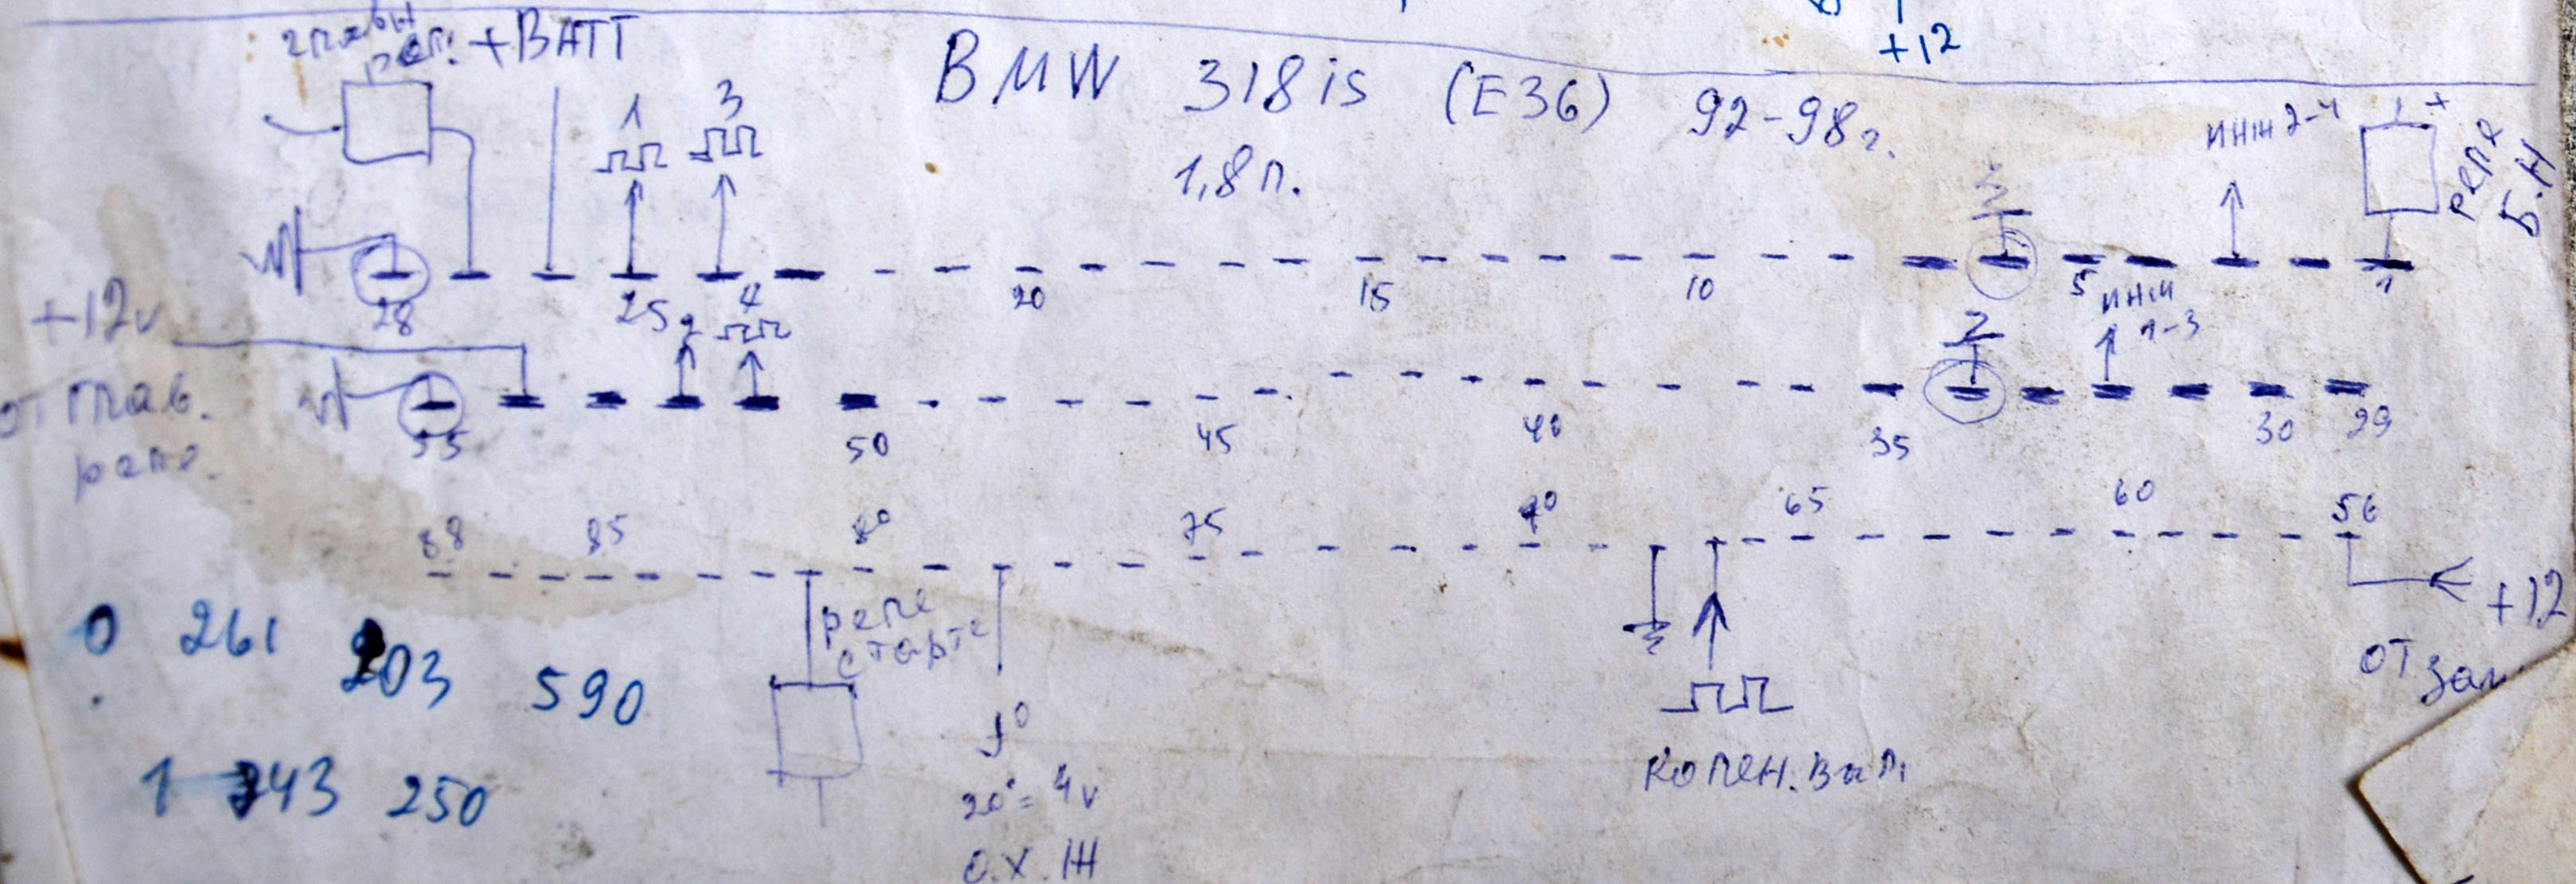 +12
главн
реле
+BATT
BMW 318is (E36) 92-98г.
1,8л.
1 3
инж 2-4
+
реле
Б.Н
28 25 20 15 10 5 1
+12v
от глав.
реле.
2 4
2
инж
1-3
55 50 45 40 35 30 29
88 85 80 75 70 65 60 56
реле
старте
+12
от зам
0 261 203 590
t°
20°=4v
О.Х.Ж
колен.вал
1 743 250